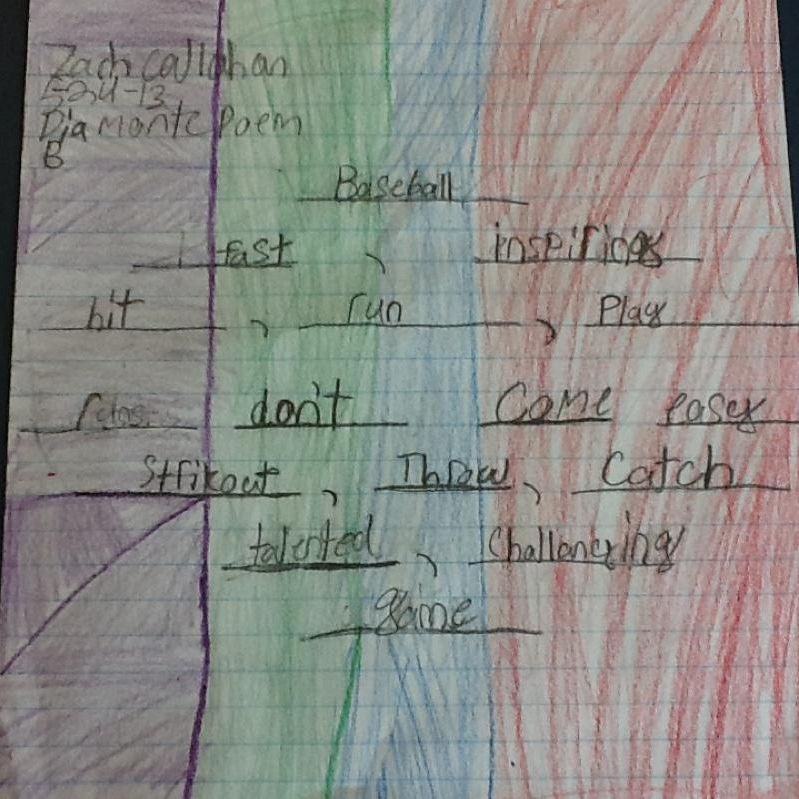 Zach Callahan
5-24-13
Diamonte Poem
B
Baseball
fast, inspiring
hit, run, Play
don't Come easy
Strikout, Throw, Catch
talented, Challenging
game